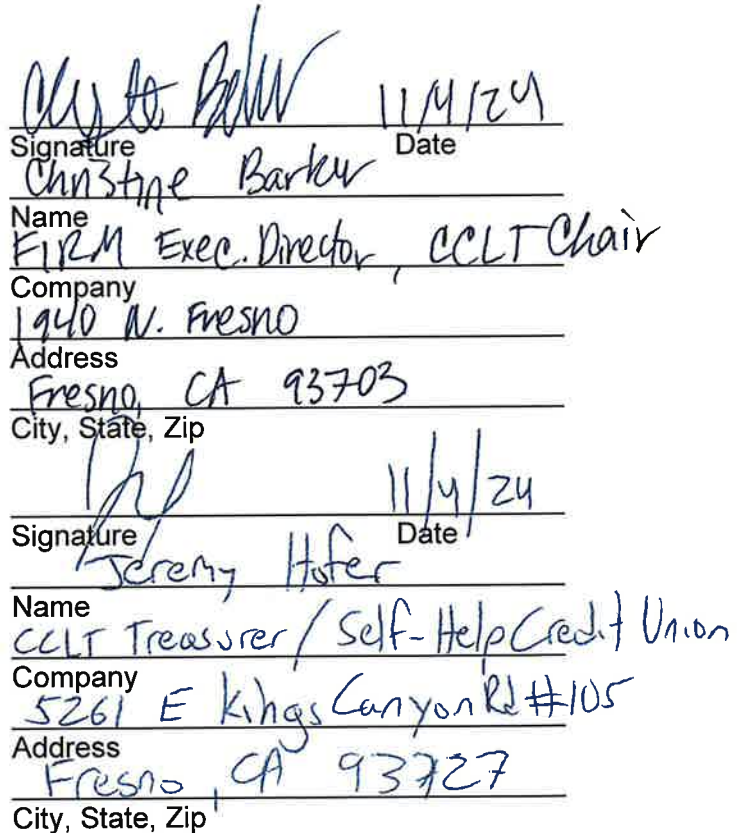 11/4/24
Signature Date
Christine Barker
Name
FIRM Exec. Director, CCLT Chair
Company
1940 N. Fresno
Address
Fresno, CA 93703
City, State, Zip
11/4/24
Signature Date
Jeremy Hofer
Name
CCLT Treasurer / Self-Help Credit Union
Company
5261 E Kings Canyon Rd #105
Address
Fresno, CA 93727
City, State, Zip